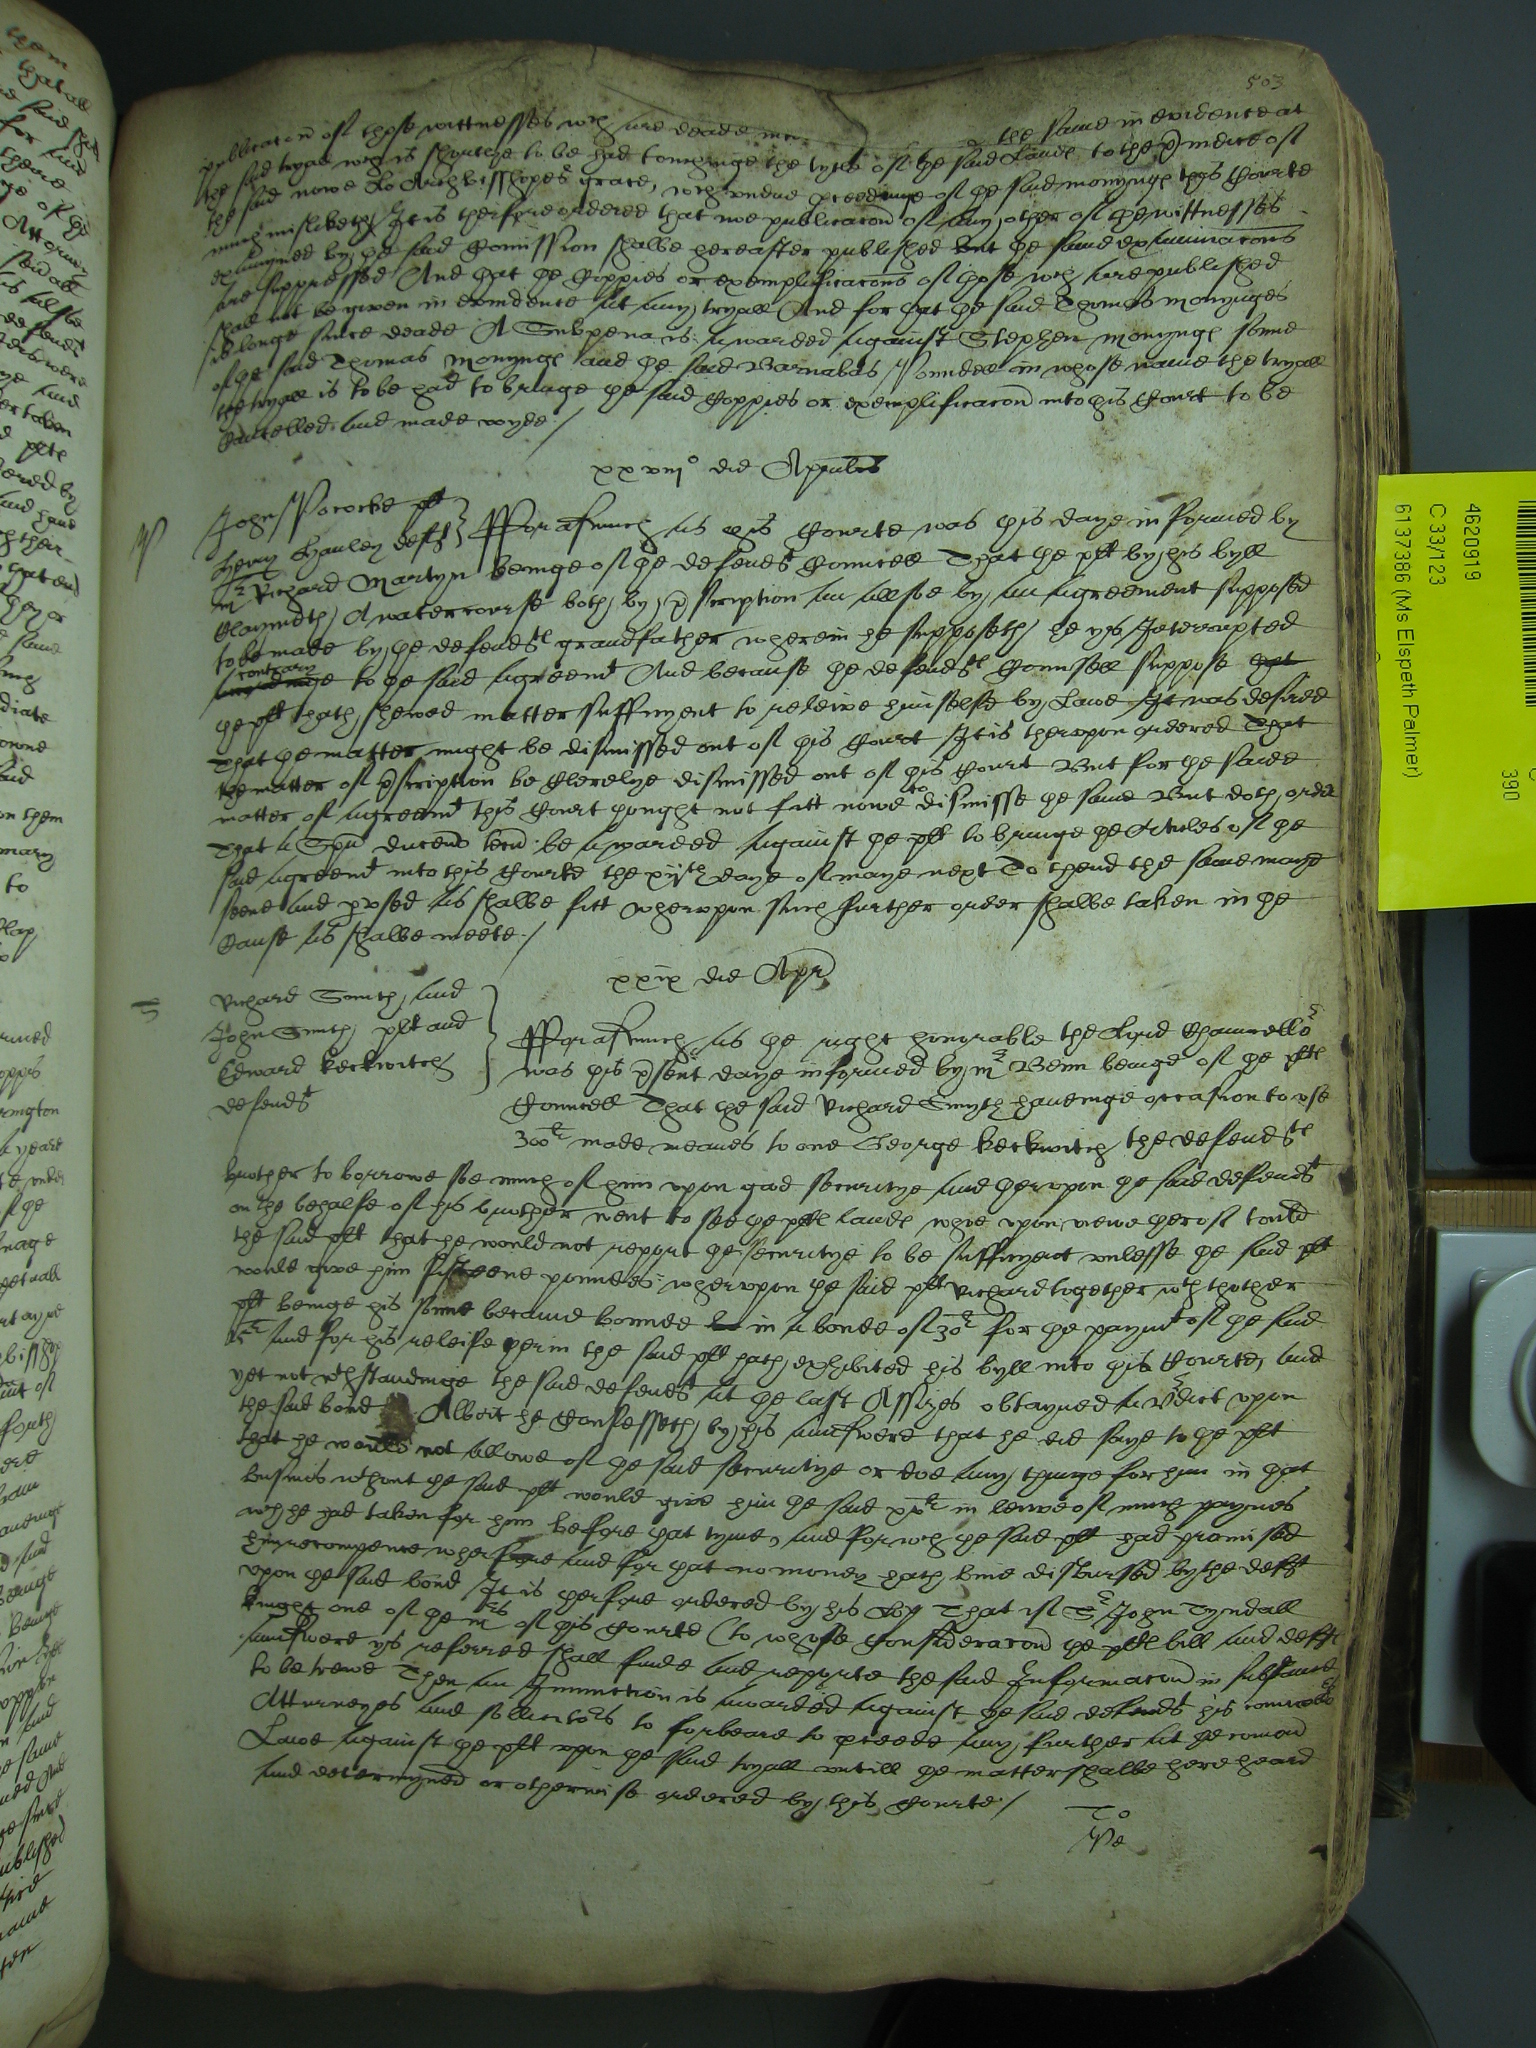 503
publicacon of those wittnesses wch are deade
the same in evidence at
the said tryall wch is shortlye to be had towchinge the tytle of the said Landes to the p'iudice of
the said nowe Lo Archbisshopes grace, wch undue proceedinge of the said Monynges this Courte
much misliketh, It is therfore ordered that noe publicacon of any other of the wittnesses
examyned by the said Comission shalbe hereafter published but the same examinacons
are suppressed And that the Coppies or exemplificacons of those wch are published
shall not be given in evidence at any tryall And for that the said Thomas Monynges
is longe since deade A Subpena is awarded against Stephen Monynges sonne
of the said Thomas Monynges and the said Barnabas in whose name the tryall
the tryall is to be had to bringe the said Coppies or exemplificacon into this Court to be
Cancelled and made voyde /
xxviijo die Aprilis
John Pococke plt
Henry Hauley deft
Fforasmuch as this Courte was this daye informed by
Mr Richard Martyn beinge of the defendts Councell That the plt by his byll
Claymeth A watercourse both by p'scription as allsoe by an agreement supposed
to be made by the defendtes grandfather wherein he supposeth he ys Interupted
contrary
to the said agreemt And because the defendtes Counsell suppose that
the plt hath shewed matter suffityent to releive himselfe by Lawe It was desired
That the matter might be dismissed out of this Court It is therupon ordered That
the matter of p'scription be Clerelye dismissed out of this Court But for the said
matter of agreemt this Court thought not fitt nowe to dismisse the same But doth order
That a Spa ducens tecum be awarded against the plt to bringe the Articles of the
said agreemt into this Courte the xijth daye of maye next To thend the same maye
seene and p'used as shalbe fitt wherupon such further order shalbe taken in the
Cause as shalbe meete /
xxix die Apr
Richard Smith and
John Smith plt and
Edward Keckwitch
defendt
Fforasmuch as the right honorable the Lord Chauncellor
was this p'sent daye informed by Mr Benn beinge of the pltes
Councell That the said Richard Smyth haueinge occasion to vse
300li made meanes to one George Keckwitch the defendtes
brother to borrowe soe much of him vpon good securitye and thervpon the said defendt
on the behalfe of his brother went to see the pltes landes whoe vpon viewe therof tould
the said plt that he would not report the securitye to be suffityent vnlesse the said plt
would give him fifteene poundes: wherupon the said plt Richard together wth thother
plt beinge his sonne became bounde in a bonde of 30li for the paymt of the said
15li and for his releife herin the said plt hath exhibited his byll into this Courte, and
yet not wthstandinge the said defendt at the last Assizes obtayned a v'dict vpon
the said bond Albeit he Confesseth by his answere that he did saye to the plt
that he would not allowe of the said securitye or doe any thinge for him in that
busines wthout the said plt would give him the said xvli in leiwe of much paynes
wch he had taken for him before that tyme, and for wch the said plt had promised
him recompence wherfore and for that no money hath bine disbursed by the deft
vpon the said bond It is therfore ordered by his Lop That if Sr John Tyndall
knight one of the mrs of this Courte (to whose Consideracon the pltes bill and defts
answere ys referred shall finde and reporte the said Informacon in substance
to be trewe Then an Iniunction is awarded against the said defendt his councell
Attorneyes and sollicitors to forbeare to p'ceede any further at the comon
Lawe against the plt vpon the said tryall vntill the matter shalbe here heard
and determyned or otherwise ordered by this Courte /
4620919
C 33/123
6137386 (Ms Elspeth Palmer)
390